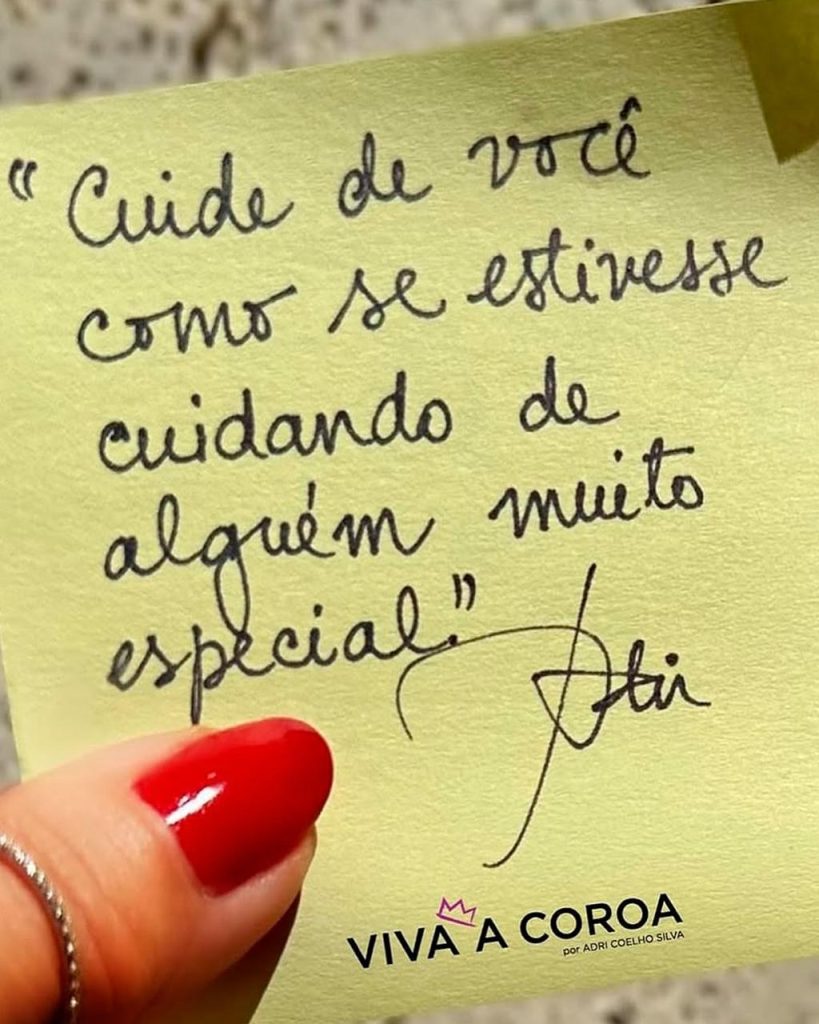 “Cuide de você
como se estivesse
cuidando de
alguém muito
especial.”
Adri
VIVA A COROA
por ADRI COELHO SILVA